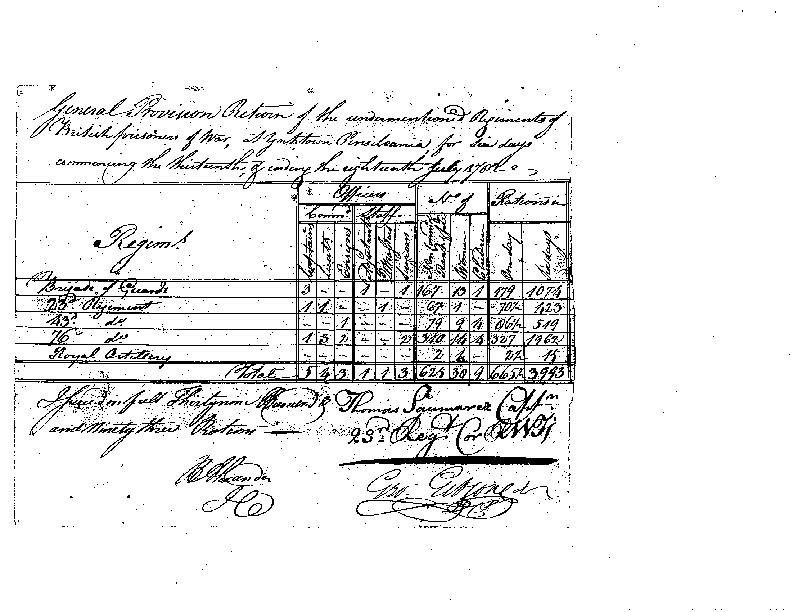 General Provision Return of the undermentioned Regiments of
British prisoners of War, at York town Pensilvania, for Six days
commencing the thirteenth, & ending the eighteenth July 1782
Officers No. of Rations in
Comm. Staff
Regimts. Captains Ensigns Women Children One day Six days
Brigade of Guards 3 - - 1 - 1 167 13 1 179 1074
23d. Regiment 1 1 - - 1 - 67 1 - 70½ 423
43d. do - - 1 - - - 79 9 4 86½ 519
76 do 1 3 2 - - 2 310 14 4 327 1962
Royal Artillery - - - - - - 2 - 2½ 15
Total 5 4 3 1 1 3 625 30 9 665½ 3993
full Thirty nine Hundred &
and Ninety three Rations
Thomas Saumarez Captn
23d. Regt. Cor
Alexander
Geo.